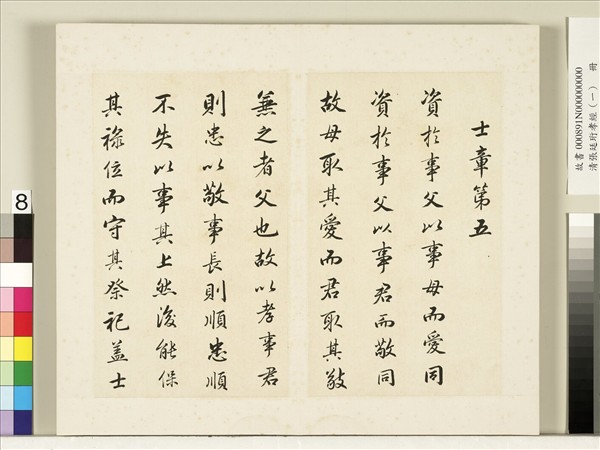 士章第五
資於事父以事母而愛同
資於事父以事君而敬同
故母取其愛而君取其敬
兼之者父也故以孝事君
則忠以敬事長則順忠順
不失以事其上然後能保
其祿位而守其祭祀盖士
故書 000891N000000000
清張廷珩孝經(一) 冊
8